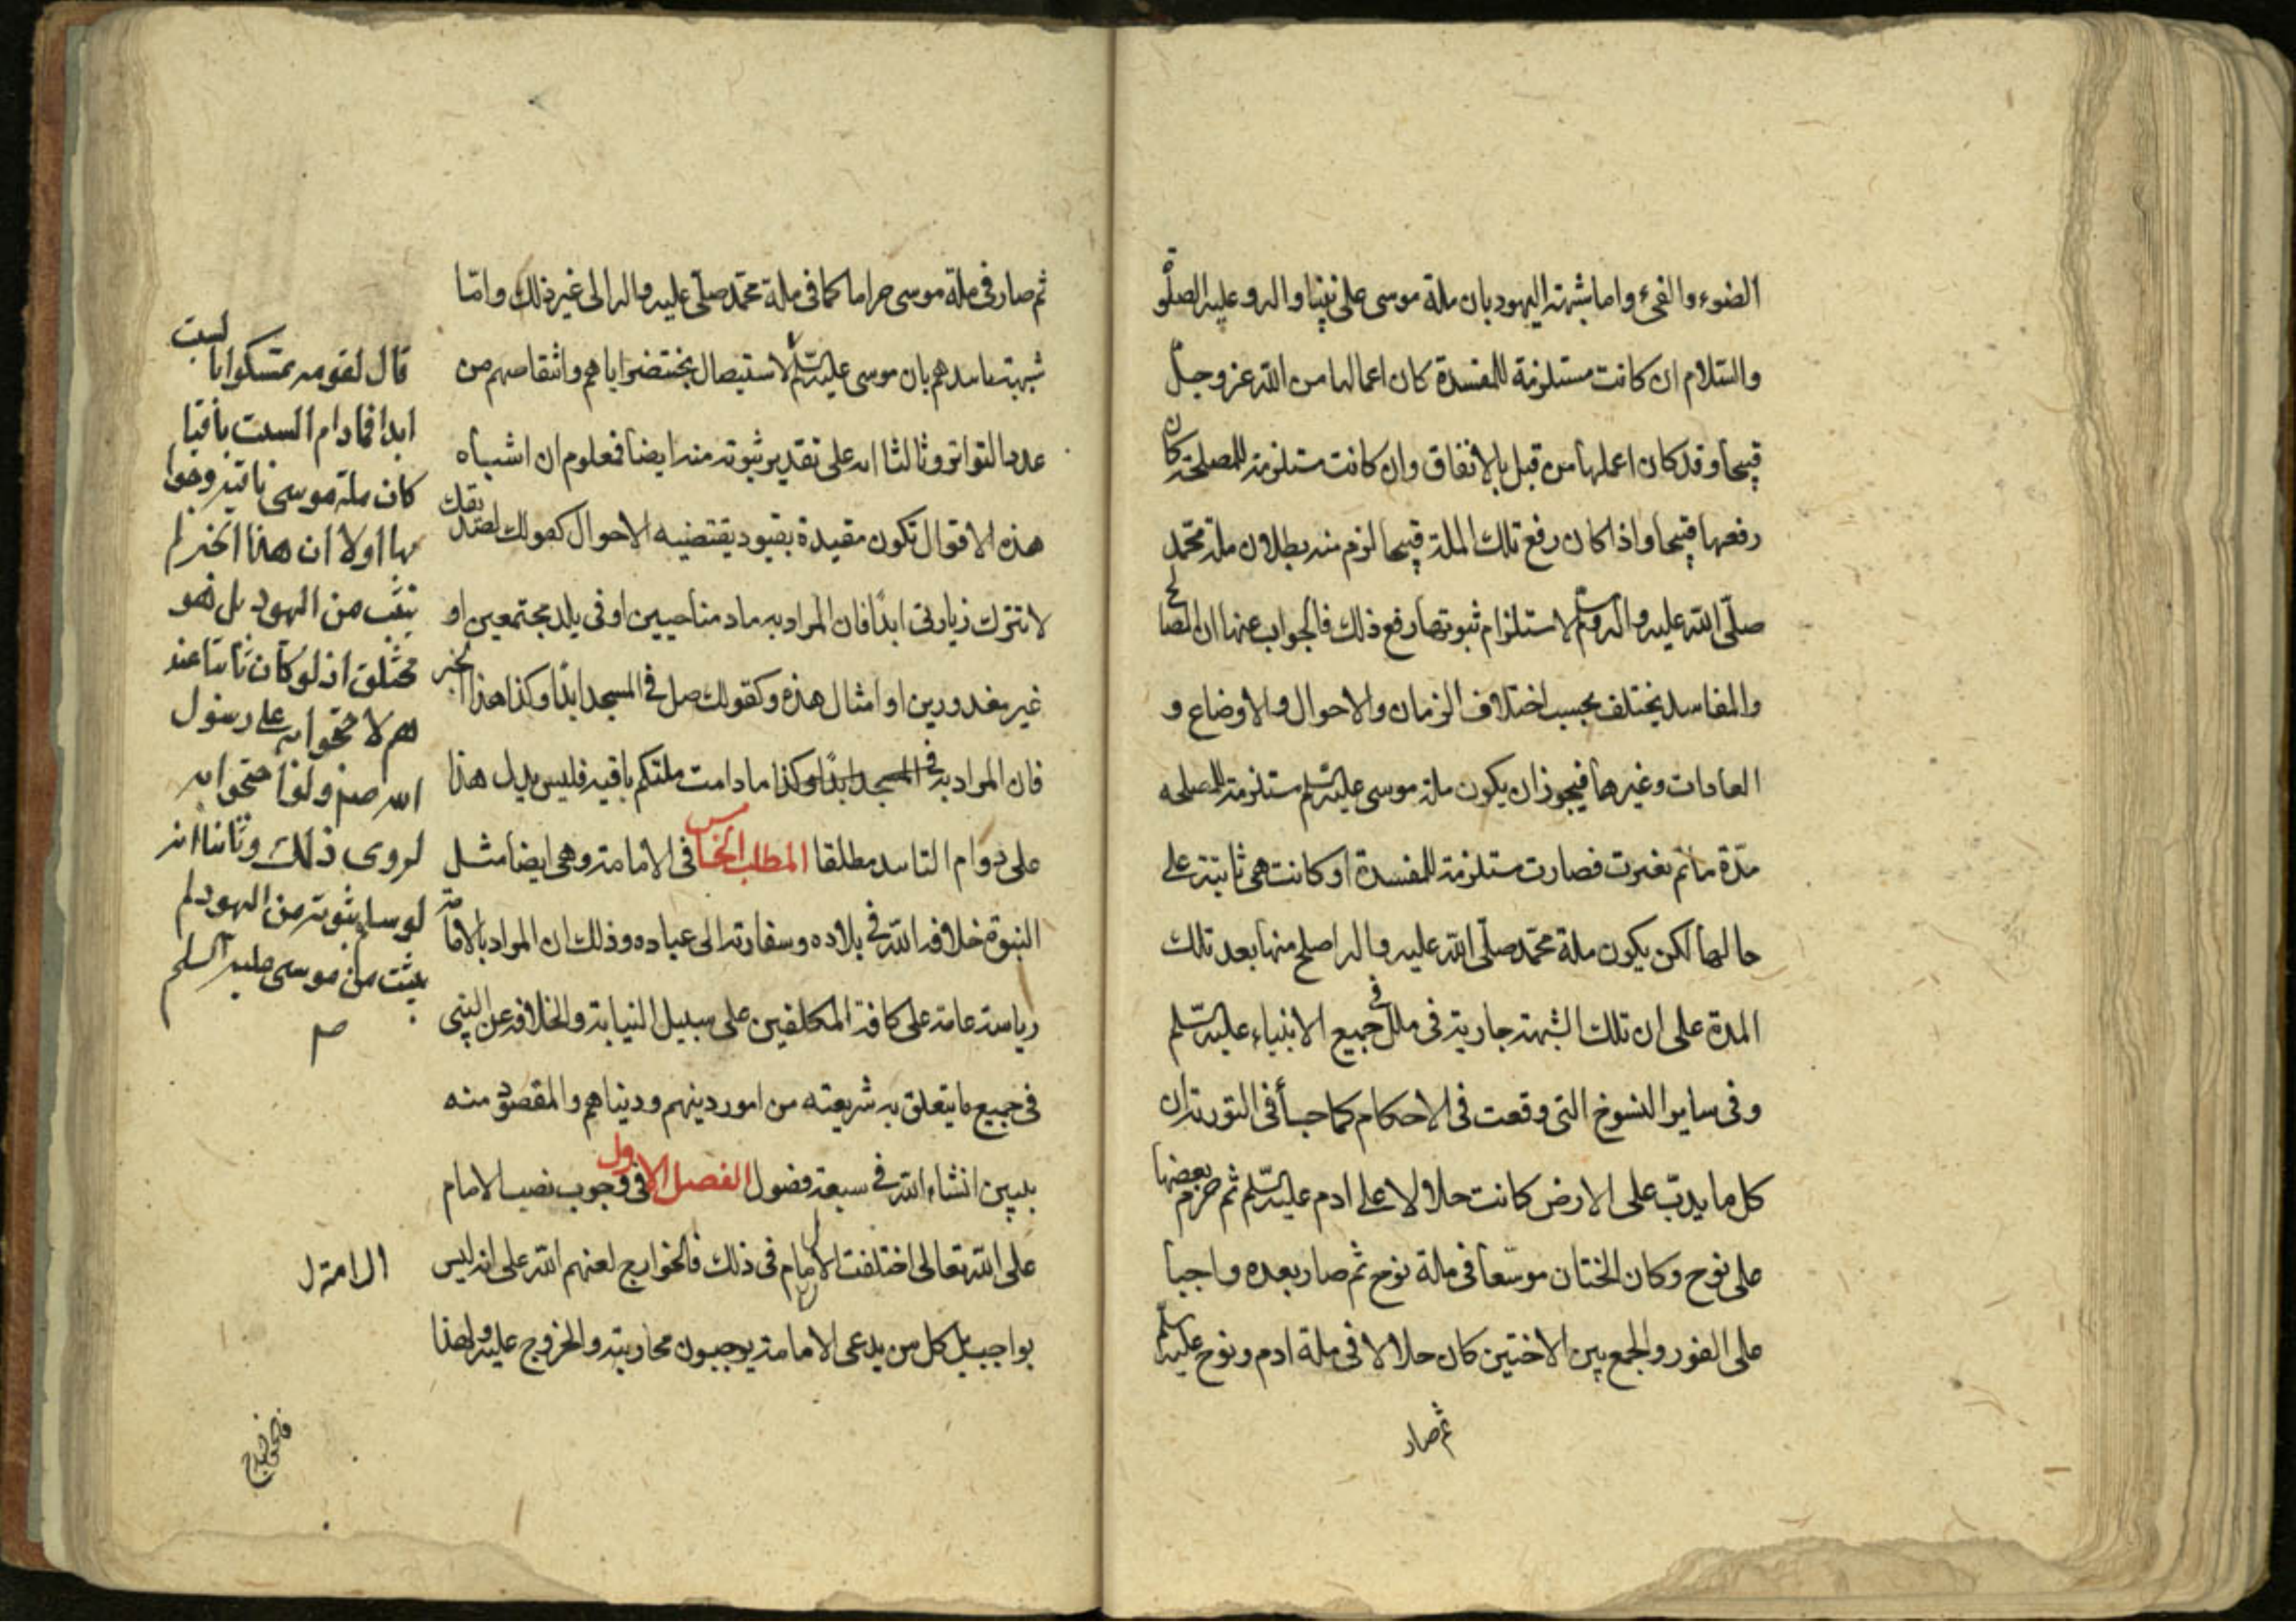 الضوء والفىء واما شبهة اليهود بان ملة موسى على نبينا واله وعليه الصلوة
والسّلام ان كانت مستلزمة للمفسدة كان اعمالها من الله عز وجلّ
قبيحا وقد كان اعملها من قبل بالاتفاق وان كانت مستلزمة للمصلحة كان
رفعها قبيحا واذا كان رفع تلك الملة قبيحا لزم منه بطلان ملة محمّد
صلّى الله عليه واله وسلم لاستلزام ثبوتها رفع ذلك فالجواب عنها ان المصالح
والمفاسد يختلف بحسب اختلاف الزمان والاحوال والاوضاع و
العادات وغيرها فيجوز ان يكون ملة موسى عليه السّلم مستلزمة للمصلحه
مدّة ما ثم تغيرت فصارت مستلزمة للمفسدة او كانت هى ثابتة على
حالها لكن يكون ملة محمّد صلّى الله عليه واله اصلح منها بعد تلك
المدة على ان تلك الشبهة جارية فى ملل جميع الانبياء عليه السّلم
وفى ساير النسوخ التى وقعت فى الاحكام كما جاء فى التورية ان
كل ما يدبّ على الارض كانت حلالا على ادم عليه السّلم ثم حرم بعضها
على نوح وكان الختان موسّعا فى ملة نوح ثم صار بعده واجبا
على الفور والجمع بين الاختين كان حلالا فى ملة ادم ونوح عليه السلم
ثم صار
ثم صار فى ملة موسى حراما كما فى ملة محمّد صلّى عليه واله الى غير ذلك وامّا
شبهة تاسدهم بان موسى عليه السّلم لاستيصال بختنصر اياهم وانتقاصهم من
عدد التواتر وثالثا انه على تقدير ثبوته منه ايضا فمعلوم ان اشباه
هذه الاقوال تكون مقيدة بقيود يقتضيه الاحوال كقولك لصديقك
لا تترك زيارتى ابدًا فان المراد به ما دمنا حيين او فى بلد مجتمعين او
غير معذورين او امثال هذه وكقولك صل فى المسجد ابدًا وكذا هذا الخبر
فان المراد به فى المسجد ابدًا وكذا ما دامت ملتكم باقية فليس يدل هذا
على دوام التاسد مطلقا المطلب الخامس فى الامامة وهى ايضا مثل
النبوة خلافة الله فى بلاده وسفارته الى عباده وذلك ان المراد بالامامة
رياسة عامة على كافة المكلفين على سبيل النيابة والخلافة عن النبى
فى جميع ما يتعلق به شريعته من امور دينهم ودنياهم والمقصود منه
يبين انشاء الله فى سبعة فصول الفصل الاول فى وجوب نصب الامام
على الله تعالى اختلفت الامام فى ذلك فالخوارج لعنهم الله على انه ليس
بواجب بل كل من يدعى الامامة يوجبون محاربته والخروج عليه ولهذا
قال لقومه تمسكوا بالسبت
ابدا فما دام السبت باقيا
كان ملة موسى باقية وجوا
بها اولا ان هذا الخبر لم
يثبت من اليهود بل هو
مختلق اذ لو كان ثابتا عند
هم لاحتجوا به على رسول
الله صلم ولو احتجوا به
لروى ذلك وثانيا انه
لو سلم ثبوته من اليهود لم
يثبت من موسى عليه السلم